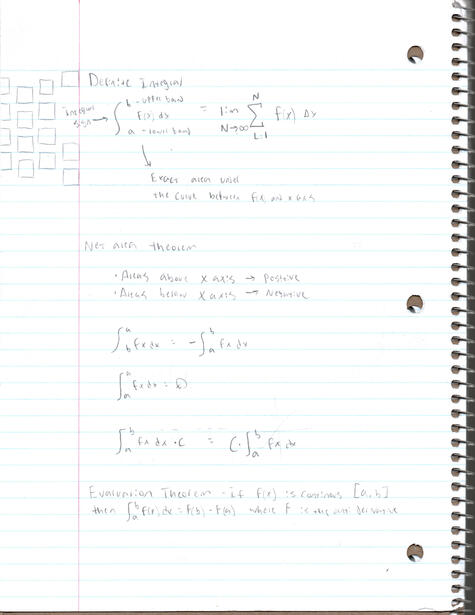 Definite Integral
Integral sign → ∫ b - upper band
F(x) dx
a - lower band
= lim N→∞ N ∑ i=1 f(x) Δx
Exact area under
the curve between f(x) and x axis
Net area theorem
• Areas above x axis → Positive
• Areas below x axis → Negative
∫_b^a fx dx = -∫_a^b fx dx
∫_a^a fx dx = 0
∫_a^b fx dx · c = C · ∫_a^b fx dx
Evaluation Theorem - if f(x) is continous [a,b]
then ∫_a^b f(x) dx = F(b) - F(a) where F is the anti derivative